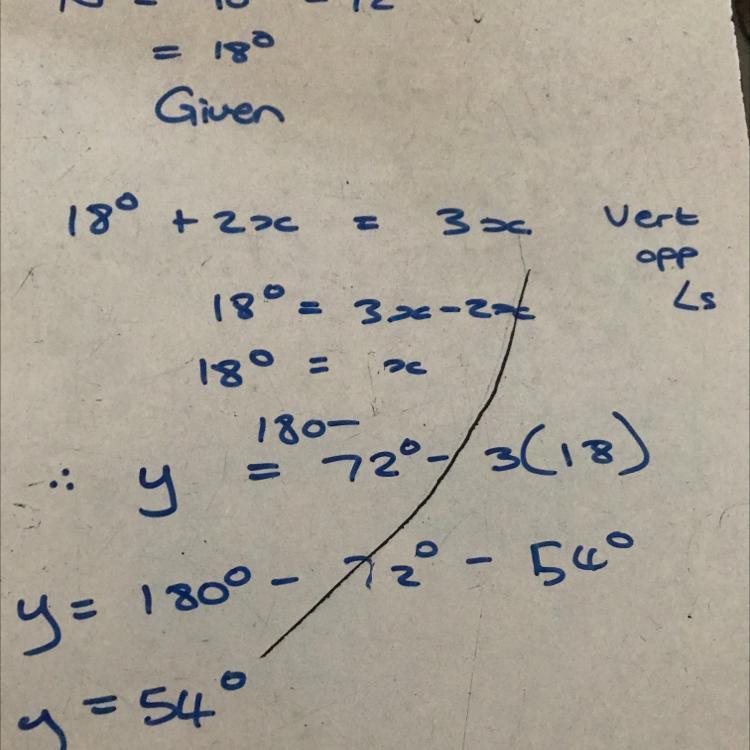 = 18°
Given
18° + 2x = 3x Vert
opp
∠s
18° = 3x - 2x
18° = x
180-
∴ y = 72° - 3(18)
y = 180° - 72° - 54°
y = 54°